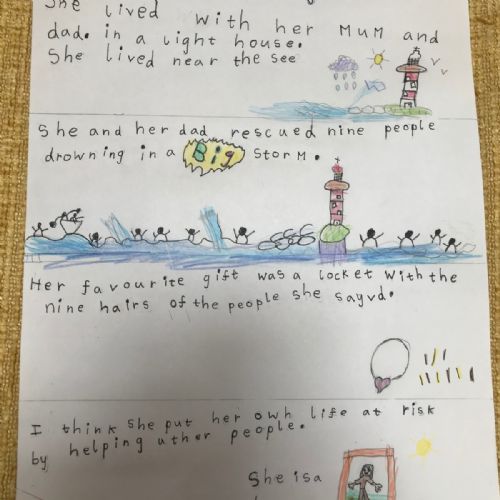 She lived with her MuM and
dad. in a light house.
She lived near the see
She and her dad rescued nine people
drowning in a Big storM.
Her favourite gift was a locket with the
nine hairs of the people she sayvd.
I think she put her own life at risk
by helping uther people.
She is a